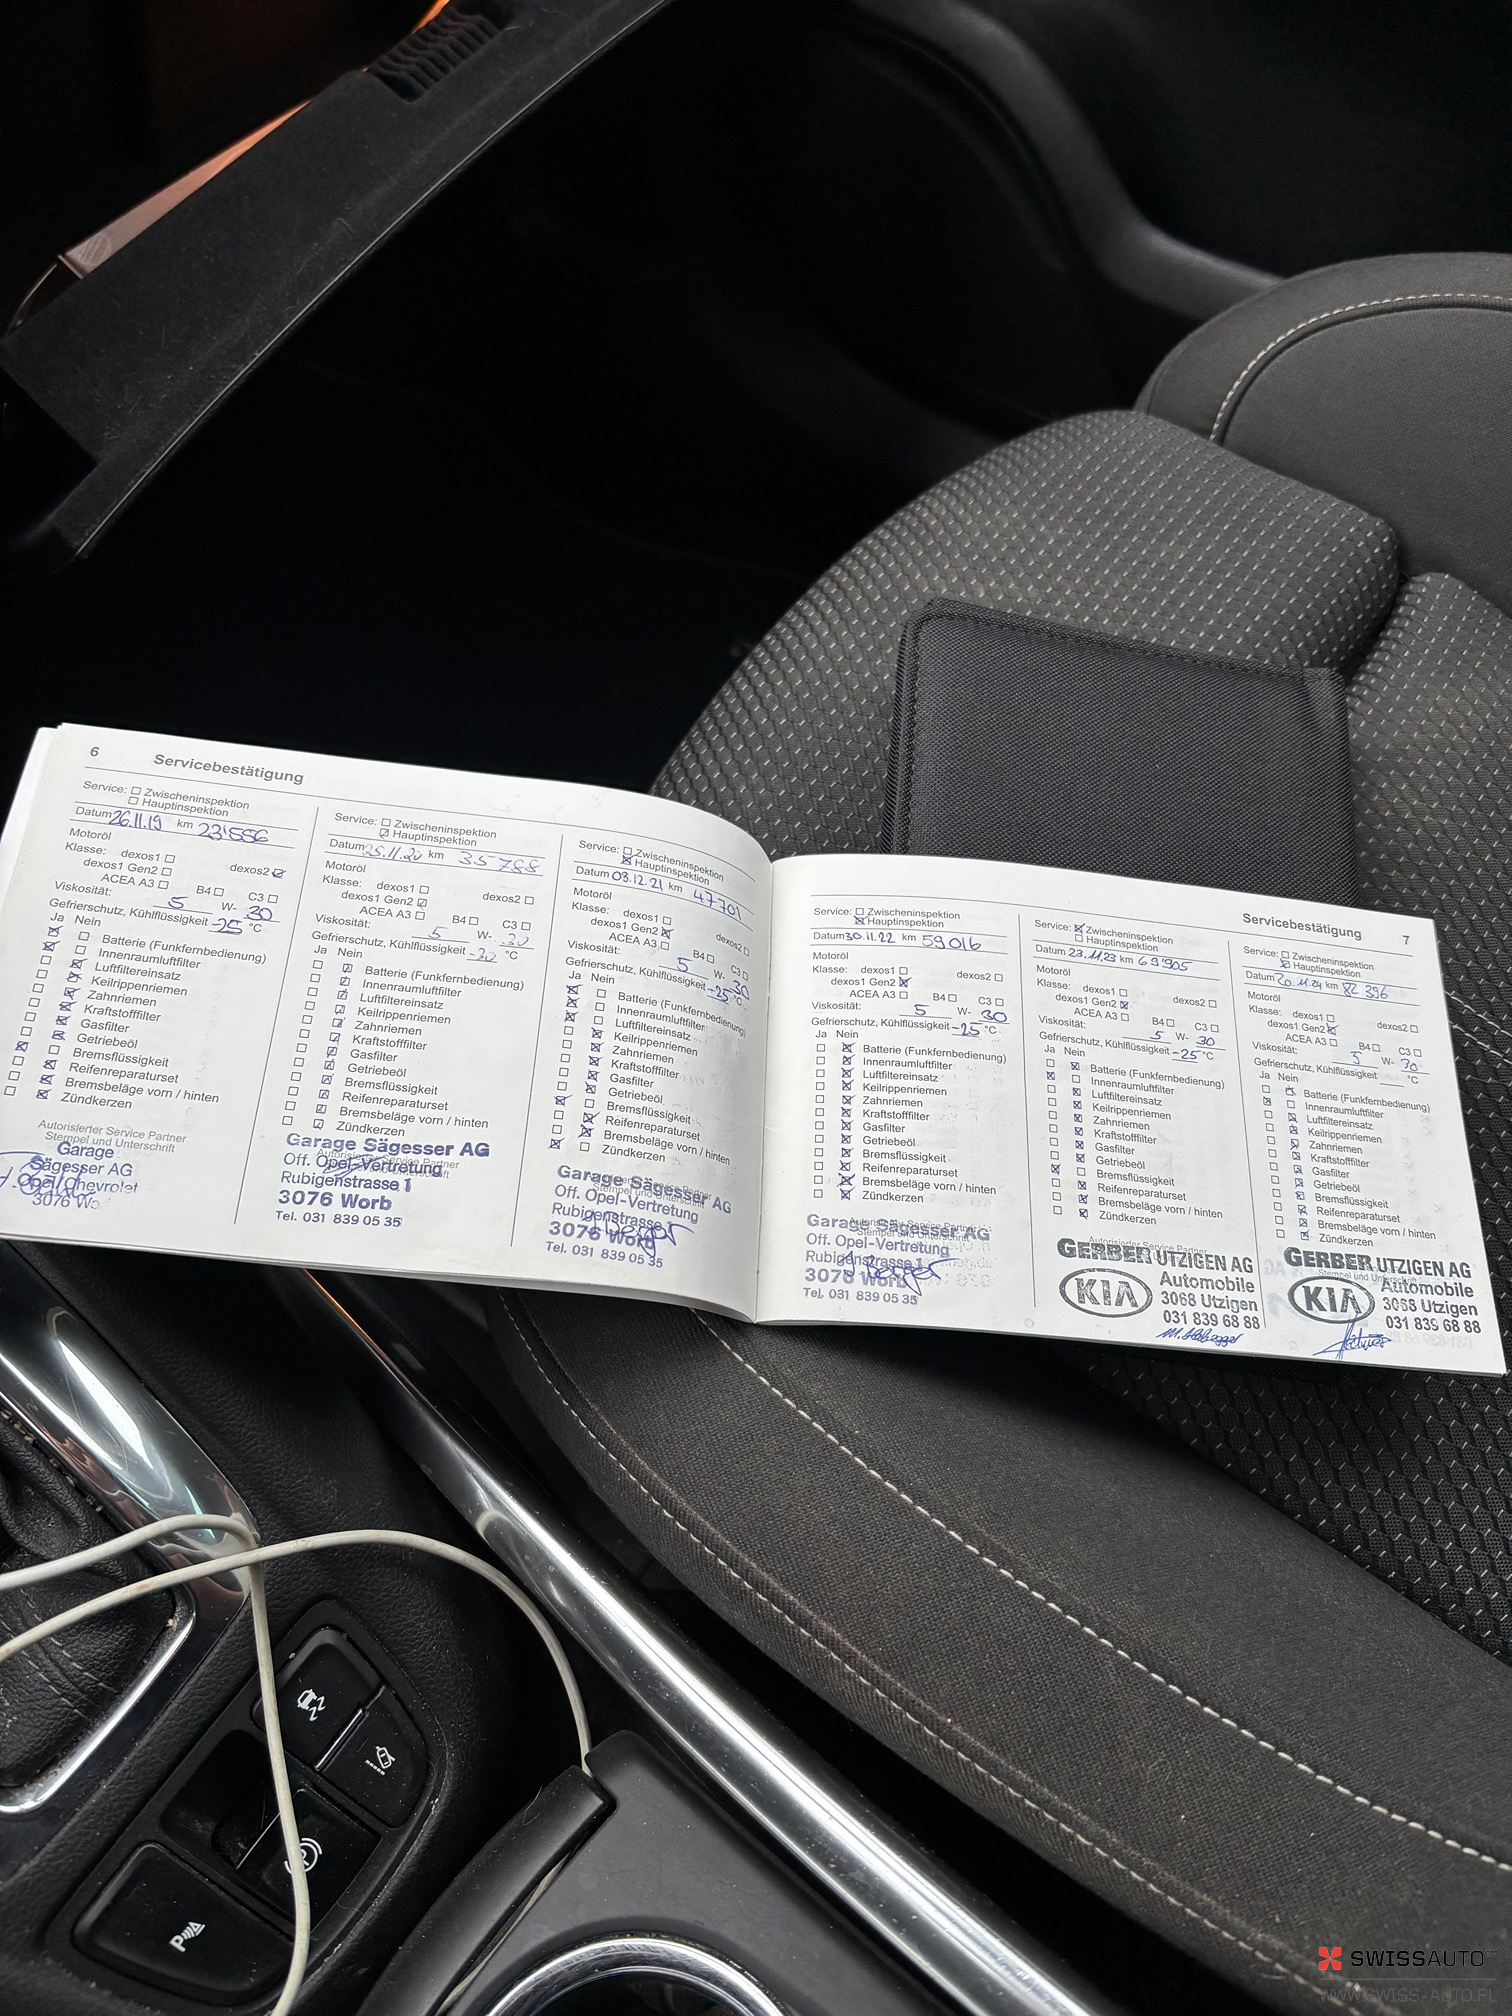 6 Servicebestätigung
Service: Zwischeninspektion
Hauptinspektion
Datum 26.11.19 km 23'556
Motoröl
Klasse: dexos1
dexos1 Gen2 dexos2
ACEA A3 B4 C3
Viskosität: 5 W- 30
Gefrierschutz, Kühlflüssigkeit -25 °C
Ja Nein
Batterie (Funkfernbedienung)
Innenraumluftfilter
Luftfiltereinsatz
Keilrippenriemen
Zahnriemen
Kraftstofffilter
Gasfilter
Getriebeöl
Bremsflüssigkeit
Reifenreparaturset
Bremsbeläge vorn / hinten
Zündkerzen
Autorisierter Service Partner
Stempel und Unterschrift
Garage
Sägesser AG
Opel/Chevrolet
3076 Wo
Service: Zwischeninspektion
Hauptinspektion
Datum 25.11.20 km 35 788
Motoröl
Klasse: dexos1
dexos1 Gen2 dexos2
ACEA A3 B4 C3
Viskosität: 5 W- 30
Gefrierschutz, Kühlflüssigkeit -30 °C
Ja Nein
Batterie (Funkfernbedienung)
Innenraumluftfilter
Luftfiltereinsatz
Keilrippenriemen
Zahnriemen
Kraftstofffilter
Gasfilter
Getriebeöl
Bremsflüssigkeit
Reifenreparaturset
Bremsbeläge vorn / hinten
Zündkerzen
Garage Sägesser AG
Off. Opel-Vertretung
Rubigenstrasse 1
3076 Worb
Tel. 031 839 05 35
Service: Zwischeninspektion
Hauptinspektion
Datum 03.12.21 km 47701
Motoröl
Klasse: dexos1
dexos1 Gen2 dexos2
ACEA A3 B4 C3
Viskosität: 5 W- 30
Gefrierschutz, Kühlflüssigkeit -25 °C
Ja Nein
Batterie (Funkfernbedienung)
Innenraumluftfilter
Luftfiltereinsatz
Keilrippenriemen
Zahnriemen
Kraftstofffilter
Gasfilter
Getriebeöl
Bremsflüssigkeit
Reifenreparaturset
Bremsbeläge vorn / hinten
Zündkerzen
Garage Sägesser AG
Off. Opel-Vertretung
Rubigenstrasse
3076 Worb
Tel. 031 839 05 35
Servicebestätigung 7
Service: Zwischeninspektion
Hauptinspektion
Datum 30.11.22 km 59016
Motoröl
Klasse: dexos1
dexos1 Gen2 dexos2
ACEA A3 B4 C3
Viskosität: 5 W- 30
Gefrierschutz, Kühlflüssigkeit -25 °C
Ja Nein
Batterie (Funkfernbedienung)
Innenraumluftfilter
Luftfiltereinsatz
Keilrippenriemen
Zahnriemen
Kraftstofffilter
Gasfilter
Getriebeöl
Bremsflüssigkeit
Reifenreparaturset
Bremsbeläge vorn / hinten
Zündkerzen
Garage Sägesser AG
Off. Opel-Vertretung
Rubigenstrasse 1
3076 Worb
Tel. 031 839 05 35
Service: Zwischeninspektion
Hauptinspektion
Datum 23.11.23 km 69'905
Motoröl
Klasse: dexos1
dexos1 Gen2 dexos2
ACEA A3 B4 C3
Viskosität: 5 W- 30
Gefrierschutz, Kühlflüssigkeit -25 °C
Ja Nein
Batterie (Funkfernbedienung)
Innenraumluftfilter
Luftfiltereinsatz
Keilrippenriemen
Zahnriemen
Kraftstofffilter
Gasfilter
Getriebeöl
Bremsflüssigkeit
Reifenreparaturset
Bremsbeläge vorn / hinten
Zündkerzen
GERBER UTZIGEN AG
KIA Automobile
3068 Utzigen
031 839 68 88
Service: Zwischeninspektion
Hauptinspektion
Datum 20.11.24 km 82 396
Motoröl
Klasse: dexos1
dexos1 Gen2 dexos2
ACEA A3 B4 C3
Viskosität: 5 W- 30
Gefrierschutz, Kühlflüssigkeit °C
Ja Nein
Batterie (Funkfernbedienung)
Innenraumluftfilter
Luftfiltereinsatz
Keilrippenriemen
Zahnriemen
Kraftstofffilter
Gasfilter
Getriebeöl
Bremsflüssigkeit
Reifenreparaturset
Bremsbeläge vorn / hinten
Zündkerzen
GERBER UTZIGEN AG
KIA Automobile
3068 Utzigen
031 839 68 88
P
SWISSAUTO
WWW.SWISS-AUTO.PL